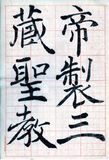 帝製三
藏聖教